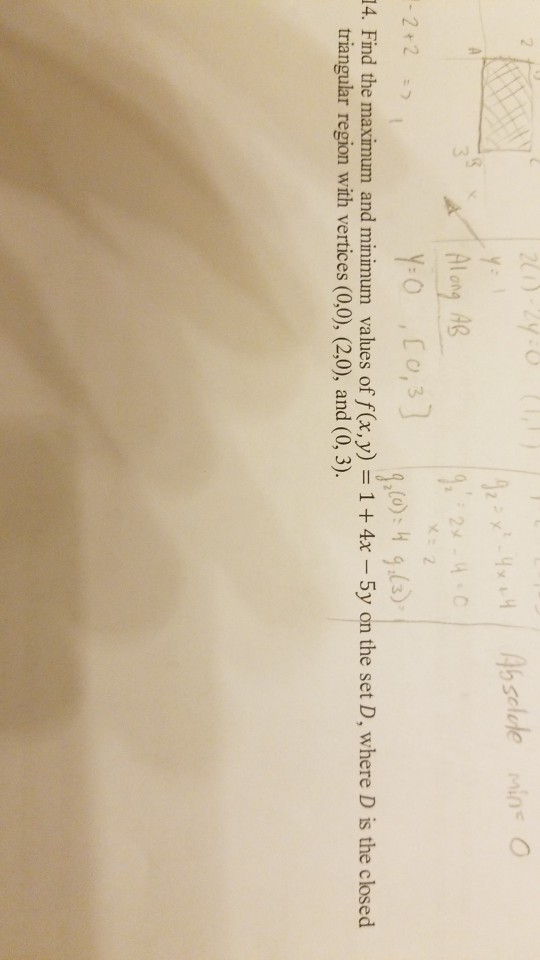 2
A
3
B
x
2(1) - 2y = 0 (1,1)
y = 1
Along AB
y = 0 , [0,3]
g₂ = x² - 4x + 4
g₂' = 2x - 4 = 0
x = 2
g₂(0) = 4 g₂(3) =
Absolute min = 0
-2+2 => 1
14. Find the maximum and minimum values of f(x, y) = 1 + 4x − 5y on the set D, where D is the closed
triangular region with vertices (0,0), (2,0), and (0, 3).